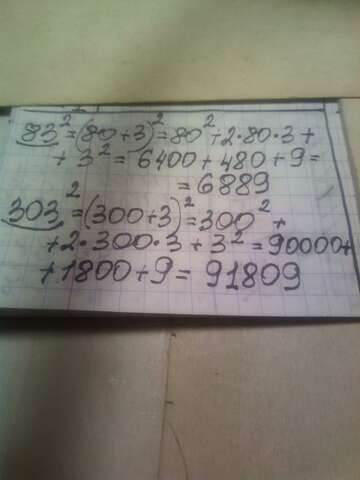 83²=(80+3)²=80²+2·80·3+
+3²=6400+480+9=
=6889
303²=(300+3)²=300²+
+2·300·3+3²=90000+
+1800+9=91809